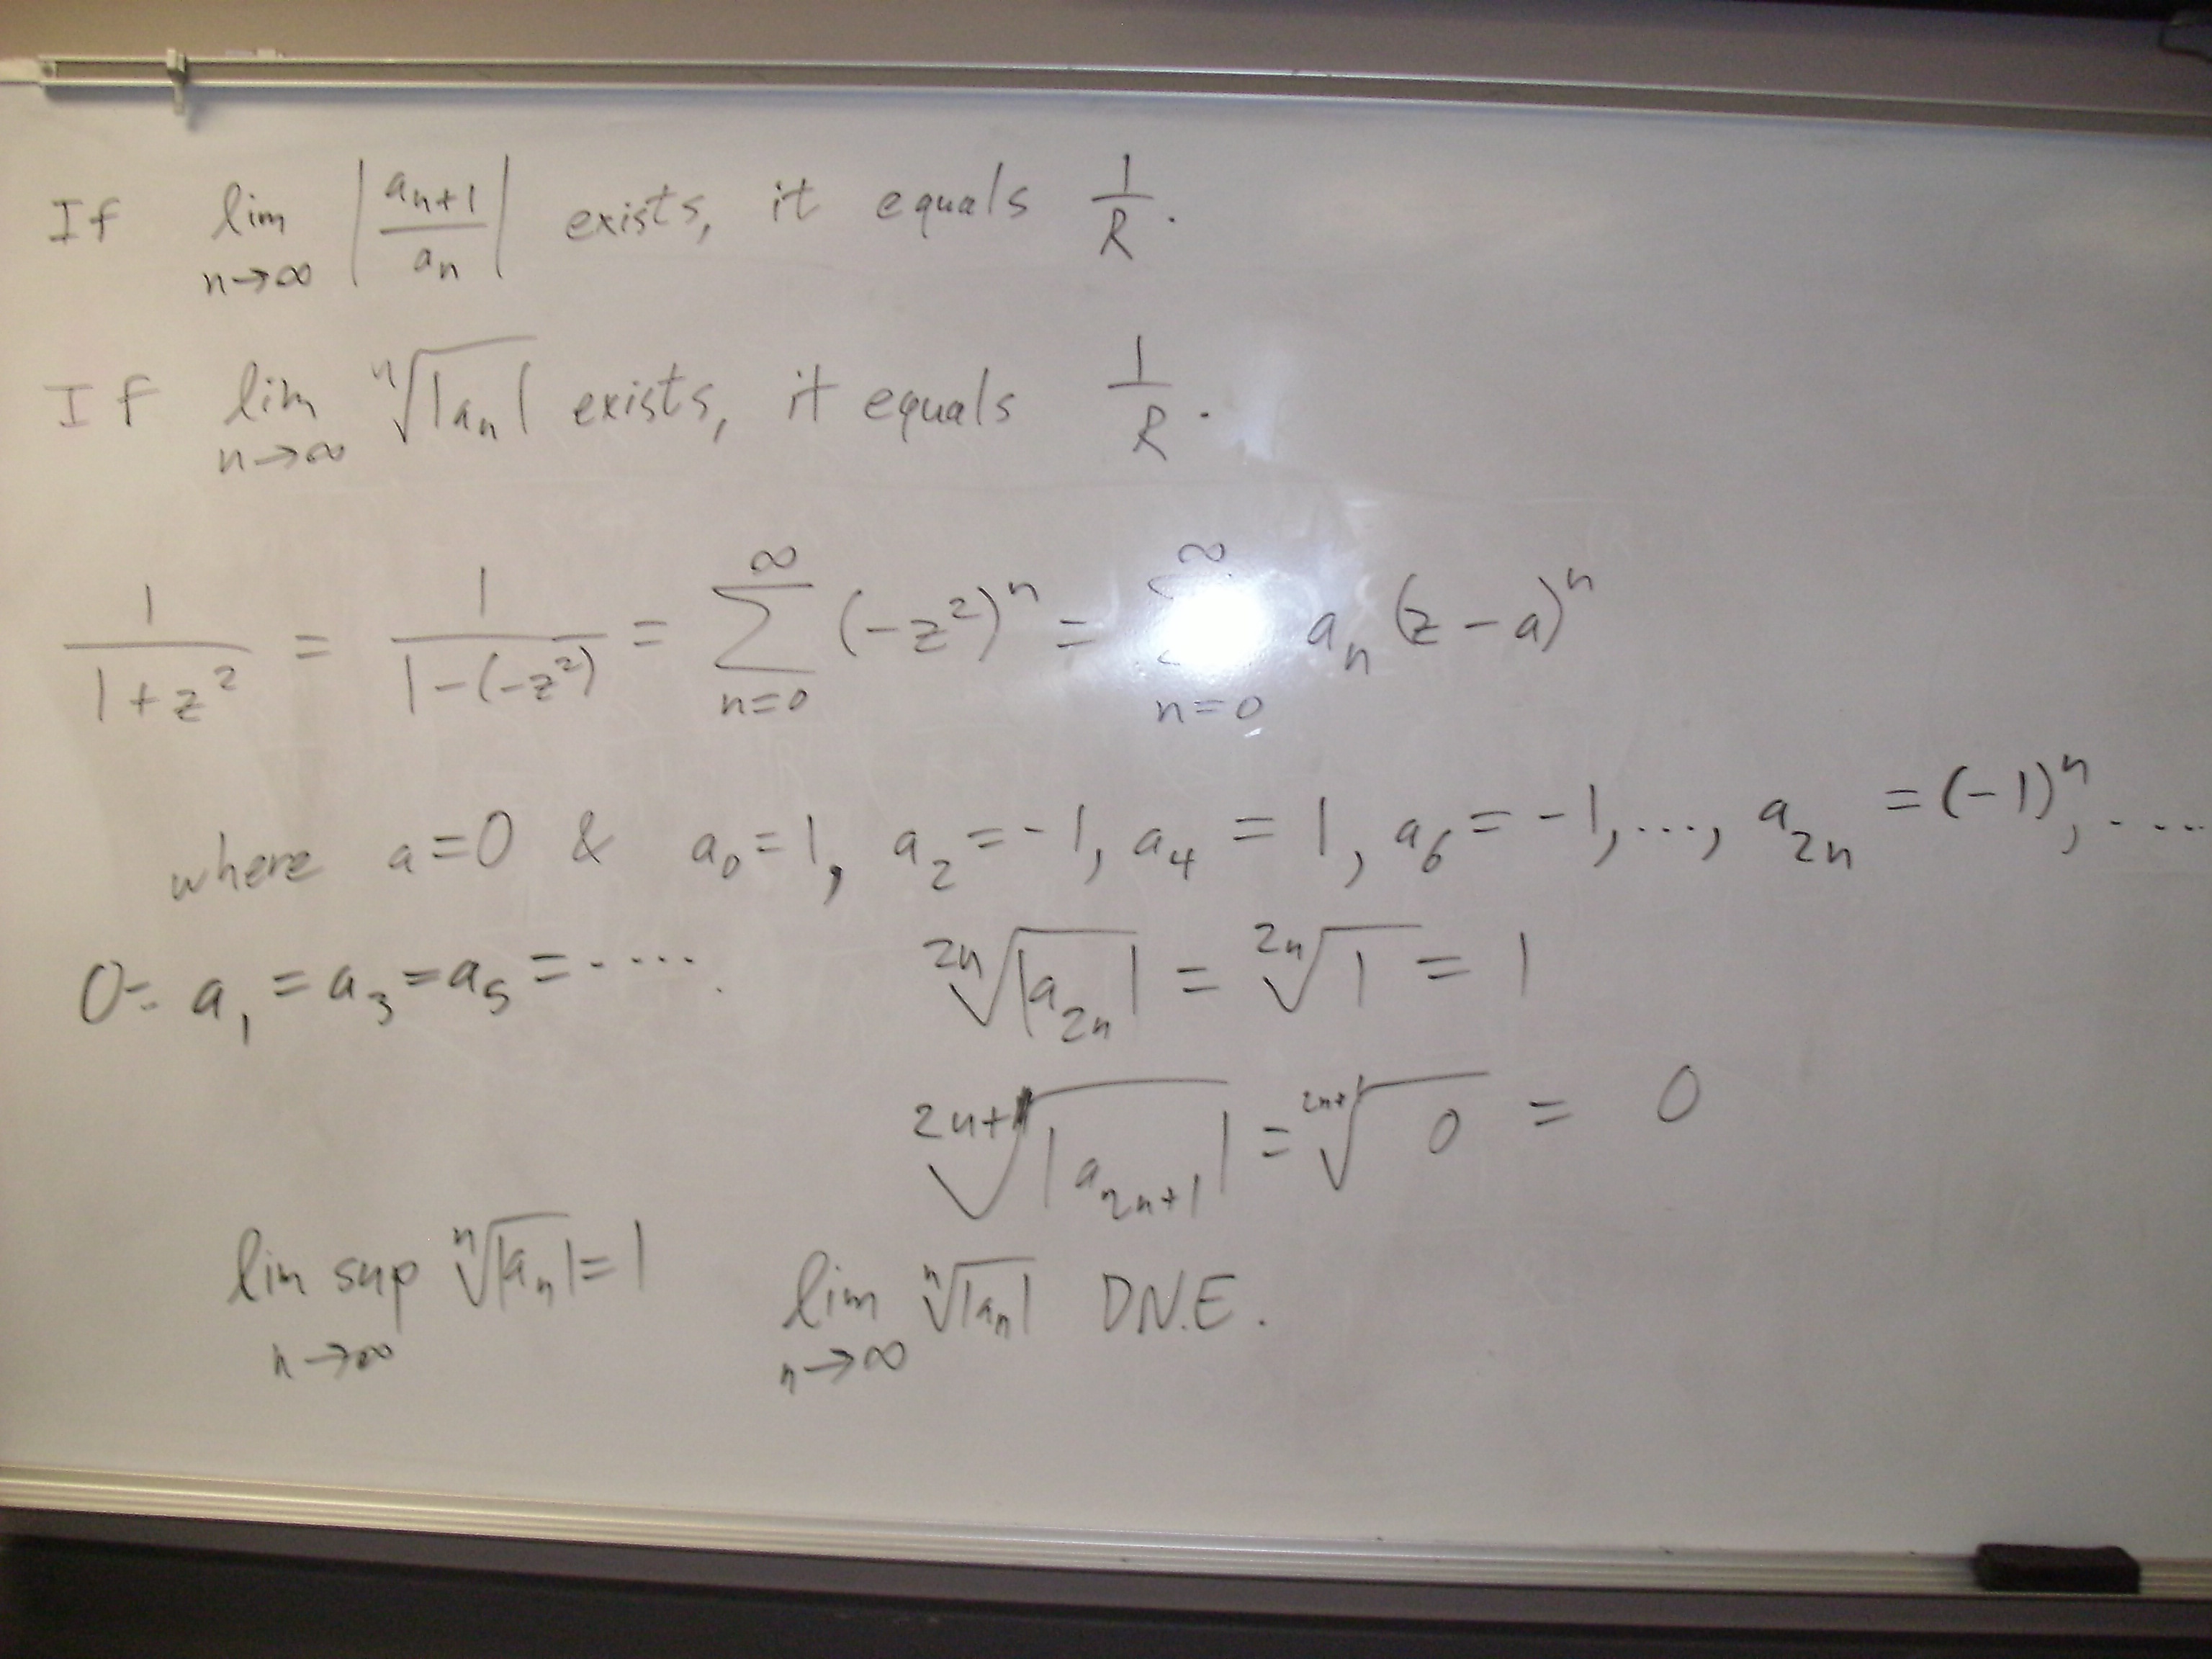 If lim_{n→∞} |a_{n+1}/a_n| exists, it equals 1/R.
If lim_{n→∞} ⁿ√|a_n| exists, it equals 1/R.
1/(1+z²) = 1/(1-(-z²)) = ∑_{n=0}^{∞} (-z²)ⁿ = ∑_{n=0}^{∞} a_n (z-a)ⁿ
where a=0 & a_0=1, a_2=-1, a_4=1, a_6=-1,..., a_{2n}=(-1)ⁿ, ....
0= a_1=a_3=a_5=.....
^{2n}√|a_{2n}| = ^{2n}√1 = 1
^{2n+1}√|a_{2n+1}| = ^{2n+1}√0 = 0
lim sup_{n→∞} ⁿ√|a_n| = 1
lim_{n→∞} ⁿ√|a_n| D.N.E.